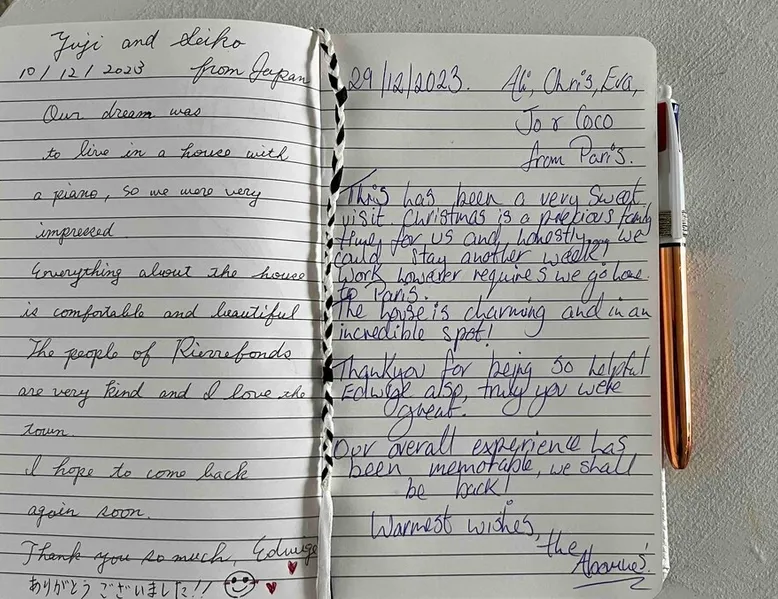 Yuji and Seiko
10/12/2023 from Japan
Our dream was
to live in a house with
a piano, so we were very
impressed
Everything about the house
is comfortable and beautiful
The people of Pierrefonds
are very kind and I love the
town.
I hope to come back
again soon.
Thank you so much, Edwige
ありがとうございました!!
29/12/2023. Ali, Chris, Eva,
Jo & Coco
from Paris.
This has been a very sweet
visit. Christmas is a precious family
time, for us and honestly, we
could stay another week!
Work howarer requires we go home
to Paris.
The house is charming and in an
incredible spot!
Thankyou for being so helpful
Edwige also, truly you were
great.
Our overall experience has
been memorable, we shall
be back!
Warmest wishes,
the